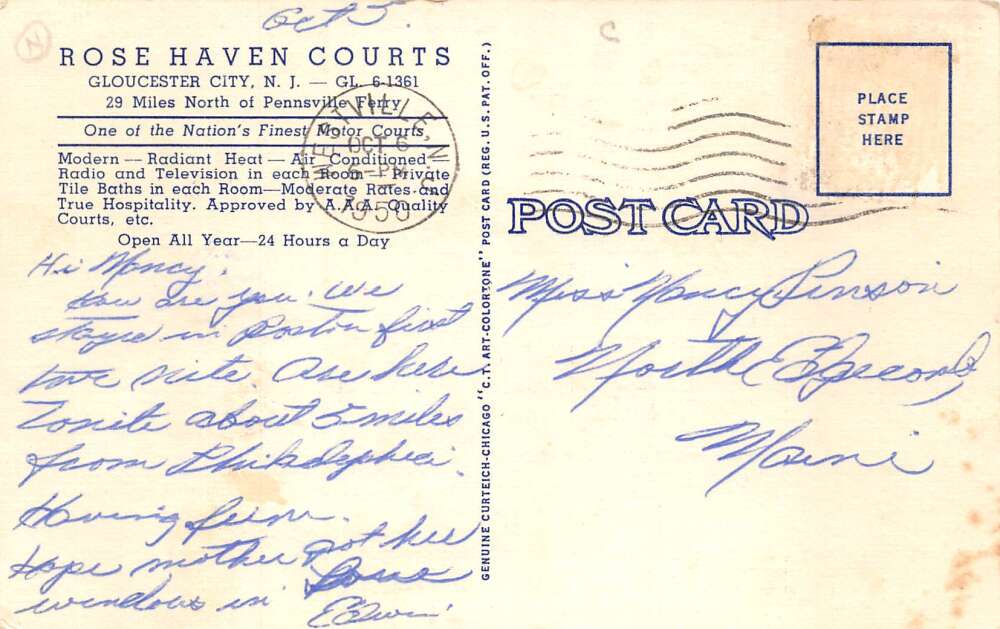 Oct 5.
N
C
ROSE HAVEN COURTS
GLOUCESTER CITY, N. J. — GL. 6-1361
29 Miles North of Pennsville Ferry
One of the Nation's Finest Motor Courts
Modern — Radiant Heat — Air Conditioned —
Radio and Television in each Room — Private
Tile Baths in each Room—Moderate Rates and
True Hospitality. Approved by A.A.A. Quality
Courts, etc.
Open All Year—24 Hours a Day
WESTVILLE, N. J.
OCT 6
PM
1956
Hi Nancy,
How are you. We
stayed in Boston first
nite. Are here
Tonite about 5 miles
from Philadelphia.
Having fun.
Hope mother got her
windows in
Love
Edwin
GENUINE CURTEICH-CHICAGO "C.T. ART-COLORTONE" POST CARD (REG. U.S. PAT. OFF.)
PLACE
STAMP
HERE
POST CARD
Miss Nancy Pinson
North Edgecomb,
Maine